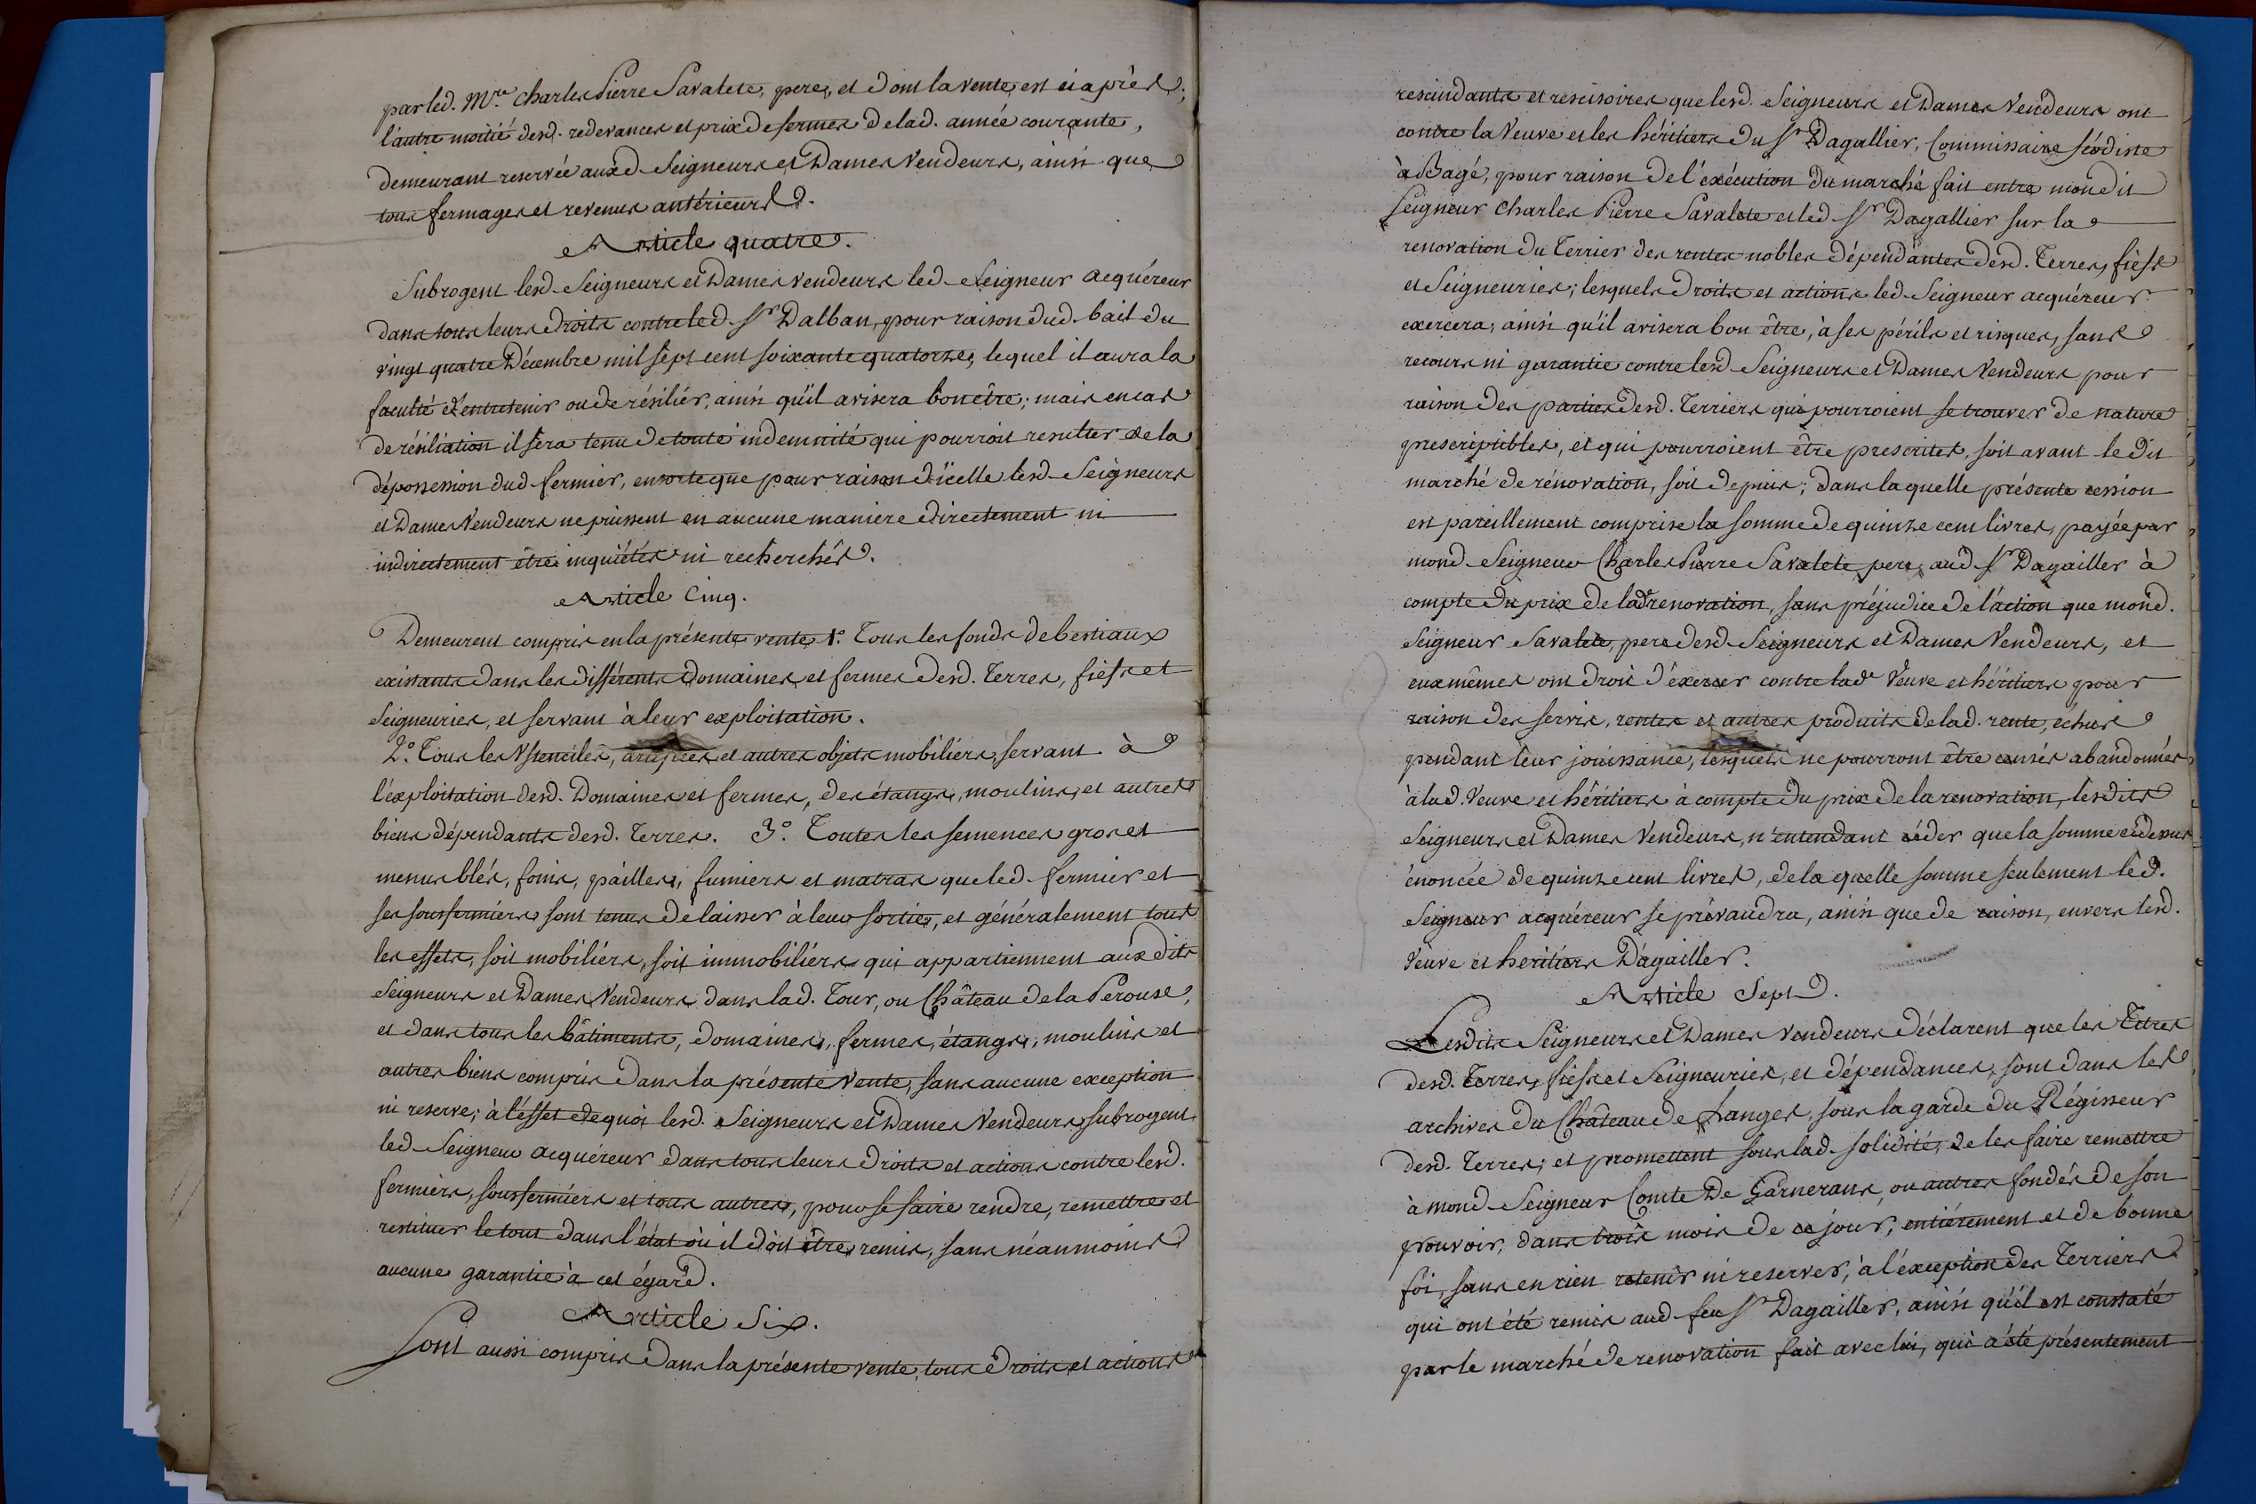 par led. Mre. Charles Pierre Savalete, pere, et dont la vente est ci après;
l'autre moitié desd. redevances et prix de fermes de lad. année courante,
demeurant reservée auxd. Seigneurs et Dames Vendeurs, ainsi que
tous fermages et revenus antérieurs.
Article quatre.
Subrogent lesd. Seigneurs et Dames vendeurs led. Seigneur acquéreur
dans tous leurs droits contre led. Sr. Dalban, pour raison dud. bail du
vingt quatre Décembre mil sept cent soixante quatorze, lequel il aura la
faculté d'entretenir ou de résiliér, ainsi qu'il avisera bon être; mais en cas
de résiliation il sera tenu de toute indemnité qui pourroit resulter de la
dépossession dud. fermier, ensorte que pour raison d'icelle lesd. Seigneurs
et Dames Vendeurs ne puissent en aucune maniere directement ni
indirectement être inquiétés ni recherchés.
Article Cinq.
Demeurent compris en la présente vente 1°. Tous les fonds de bestiaux
existants dans les différents domaines et fermes desd. Terres, fiefs et
Seigneuries, et servant à leur exploitation.
2°. Tous les Ustenciles, artifices et autres objets mobiliers, servant à
l'exploitation desd. Domaines et fermes, des étangs, moulins, et autres
biens dépendants desd. Terres. 3°. Toutes les semences gros et
menus bléd, foins, pailles, fumiers et matras que led. fermier et
ses sousfermiers sont tenus de laisser à leur sortie, et généralement tous
les effets, soit mobiliérs, soit immobiliérs qui appartiennent aux dits
Seigneurs et Dames Vendeurs dans lad. Tour, ou Château de la Perouse,
et dans tous les bâtiments, domaines, fermes, étangs, moulins et
autres biens compris dans la présente Vente, sans aucune exception
ni reserve; à l'éffet de quoi lesd. Seigneurs et Dames Vendeurs subrogent
led. Seigneur acquéreur dans tous leurs droits et actions contre lesd.
fermiers, sousfermiers et tous autres, pour se faire rendre, remettre et
restituer le tout dans l'état où il doit être remis, sans néanmoins
aucune garantie à cet égard.
Article Six.
Sont aussi compris dans la présente vente, tous droits et actions
rescindants et rescisoires que lesd. Seigneurs et Dames Vendeurs ont
contre la Veuve et les héritiers du Sr. Dagallier, Commissaire féodiste
à Bagé, pour raison de l'exécution du marché fait entre mondit
Seigneur Charles Pierre Savalete et led. Sr. Dagallier sur la
renovation du Terrier des rentes nobles dépendantes desd. Terres, fiefs
et Seigneuries; lesquels droits et actions led. Seigneur acquéreur
exercera, ainsi qu'il avisera bon être, à ses périls et risques, sans
recours ni garantie contre lesd. Seigneurs et Dames Vendeurs pour
raison des parties desd. Terriers qui pourroient se trouver de nature
prescriptibles, et qui pourroient être prescrites, soit avant le dit
marché de rénovation, soit depuis; dans laquelle présente cession
est pareillement comprise la somme de quinze cent livres, payée par
mond. Seigneur Charles Pierre Savalete pere, aud. Sr. Dagailler à
compte du prix de lade. renovation, sans préjudice de l'action que mond.
Seigneur Savalete, pere desd. Seigneurs et Dames Vendeurs, et
euxmêmes ont droit d'éxercer contre lade. Veuve et héritiers pour
raison des servis, rentes et autres produits de lad. rente, échus
pendant leur jouissance, lesquels ne pourront être censés abandonnés
à lad. Veuve et héritiers à compte du prix de la renovation, lesdits
Seigneurs et Dames Vendeurs, n'entendant céder que la somme cidessus
énoncée de quinze cent livres, de laquelle somme seulement led.
Seigneur acquéreur se prévaudra, ainsi que de raison, envers lesd.
Veuve et heritiers Dagailler.
Article Sept.
Lesdits Seigneurs et Dames Vendeurs déclarent que les Titres
desd. Terres, fiefs et Seigneuries, et dépendances, sont dans les
archives du Château de Langes, sous la garde du Régisseur
desd. Terres; et promettent sous lad. solidité, de les faire remettre
à mond. Seigneur Comte De Garnerans, ou autres fondés de son
pouvoir, dans trois mois de ce jour, entiérement et de bonne
foi, sans en rien retenir ni reserver, à l'éxception des Terriers
qui ont été remis aud. feu Sr. Dagailler, ainsi qu'il est constaté
par le marché de renovation fait avec lui, qui a été présentement